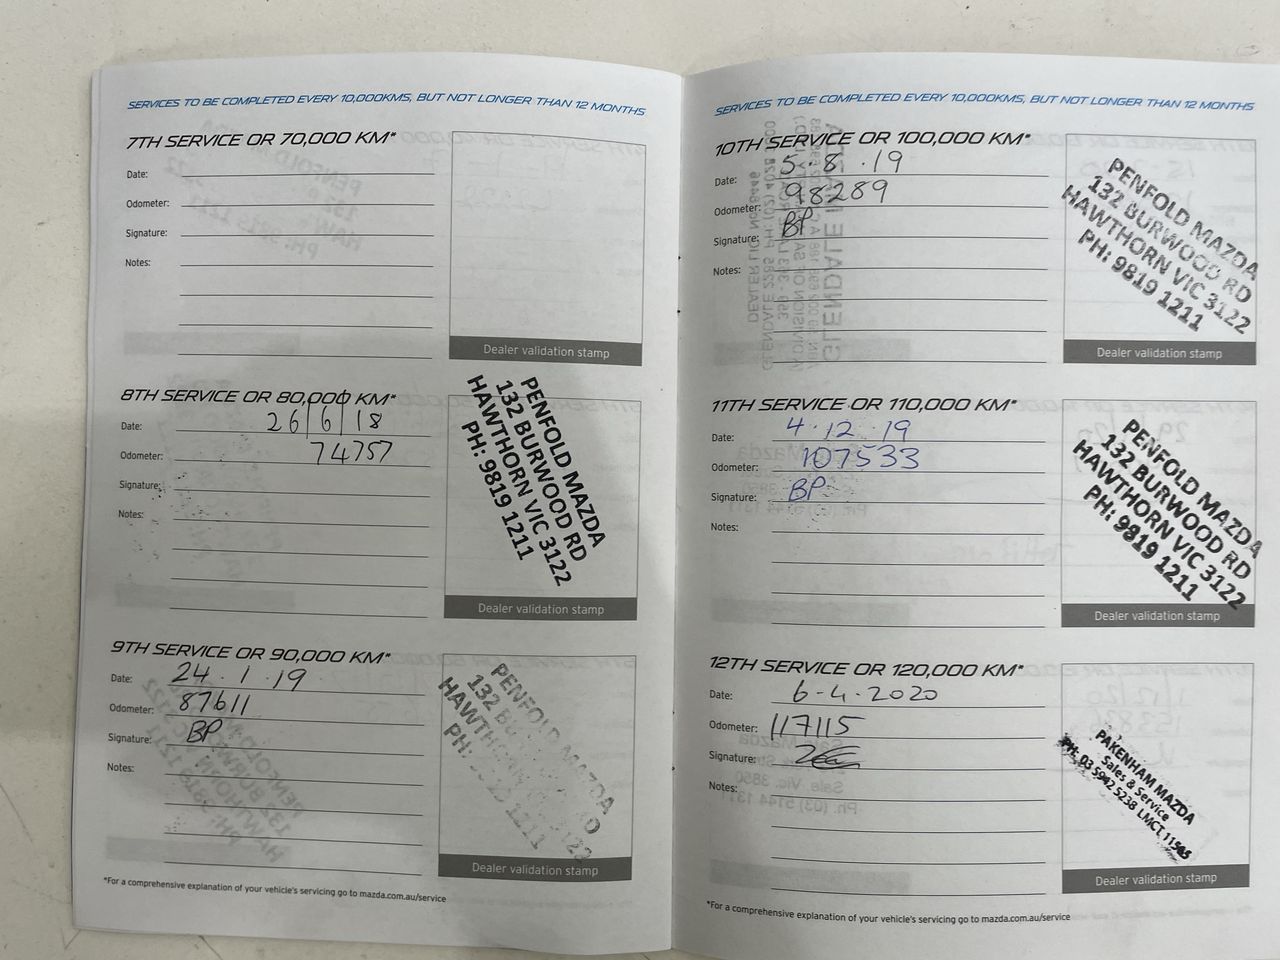 SERVICES TO BE COMPLETED EVERY 10,000KMS, BUT NOT LONGER THAN 12 MONTHS
7TH SERVICE OR 70,000 KM*
Date:
Odometer:
Signature:
Notes:
Dealer validation stamp
8TH SERVICE OR 80,000 KM*
Date: 26|6|18
Odometer: 74757
Signature:
Notes:
PENFOLD MAZDA
132 BURWOOD RD
HAWTHORN VIC 3122
PH: 9819 1211
Dealer validation stamp
9TH SERVICE OR 90,000 KM*
Date: 24.1.19
Odometer: 87611
Signature: BP
Notes:
PENFOLD MAZDA
132
PH:
1211
Dealer validation stamp
*For a comprehensive explanation of your vehicle's servicing go to mazda.com.au/service
SERVICES TO BE COMPLETED EVERY 10,000KMS, BUT NOT LONGER THAN 12 MONTHS
10TH SERVICE OR 100,000 KM*
Date: 5.8.19
Odometer: 98289
Signature: BP
Notes:
PENFOLD MAZDA
132 BURWOOD RD
HAWTHORN VIC 3122
PH: 9819 1211
Dealer validation stamp
11TH SERVICE OR 110,000 KM*
Date: 4.12.19
Odometer: 107533
Signature: BP
Notes:
PENFOLD MAZDA
132 BURWOOD RD
HAWTHORN VIC 3122
PH: 9819 1211
Dealer validation stamp
12TH SERVICE OR 120,000 KM*
Date: 6-4-2020
Odometer: 117115
Signature:
Notes:
PAKENHAM MAZDA
Sales & Service
PH: 03 5942 5238 LMCT 11565
Dealer validation stamp
*For a comprehensive explanation of your vehicle's servicing go to mazda.com.au/service